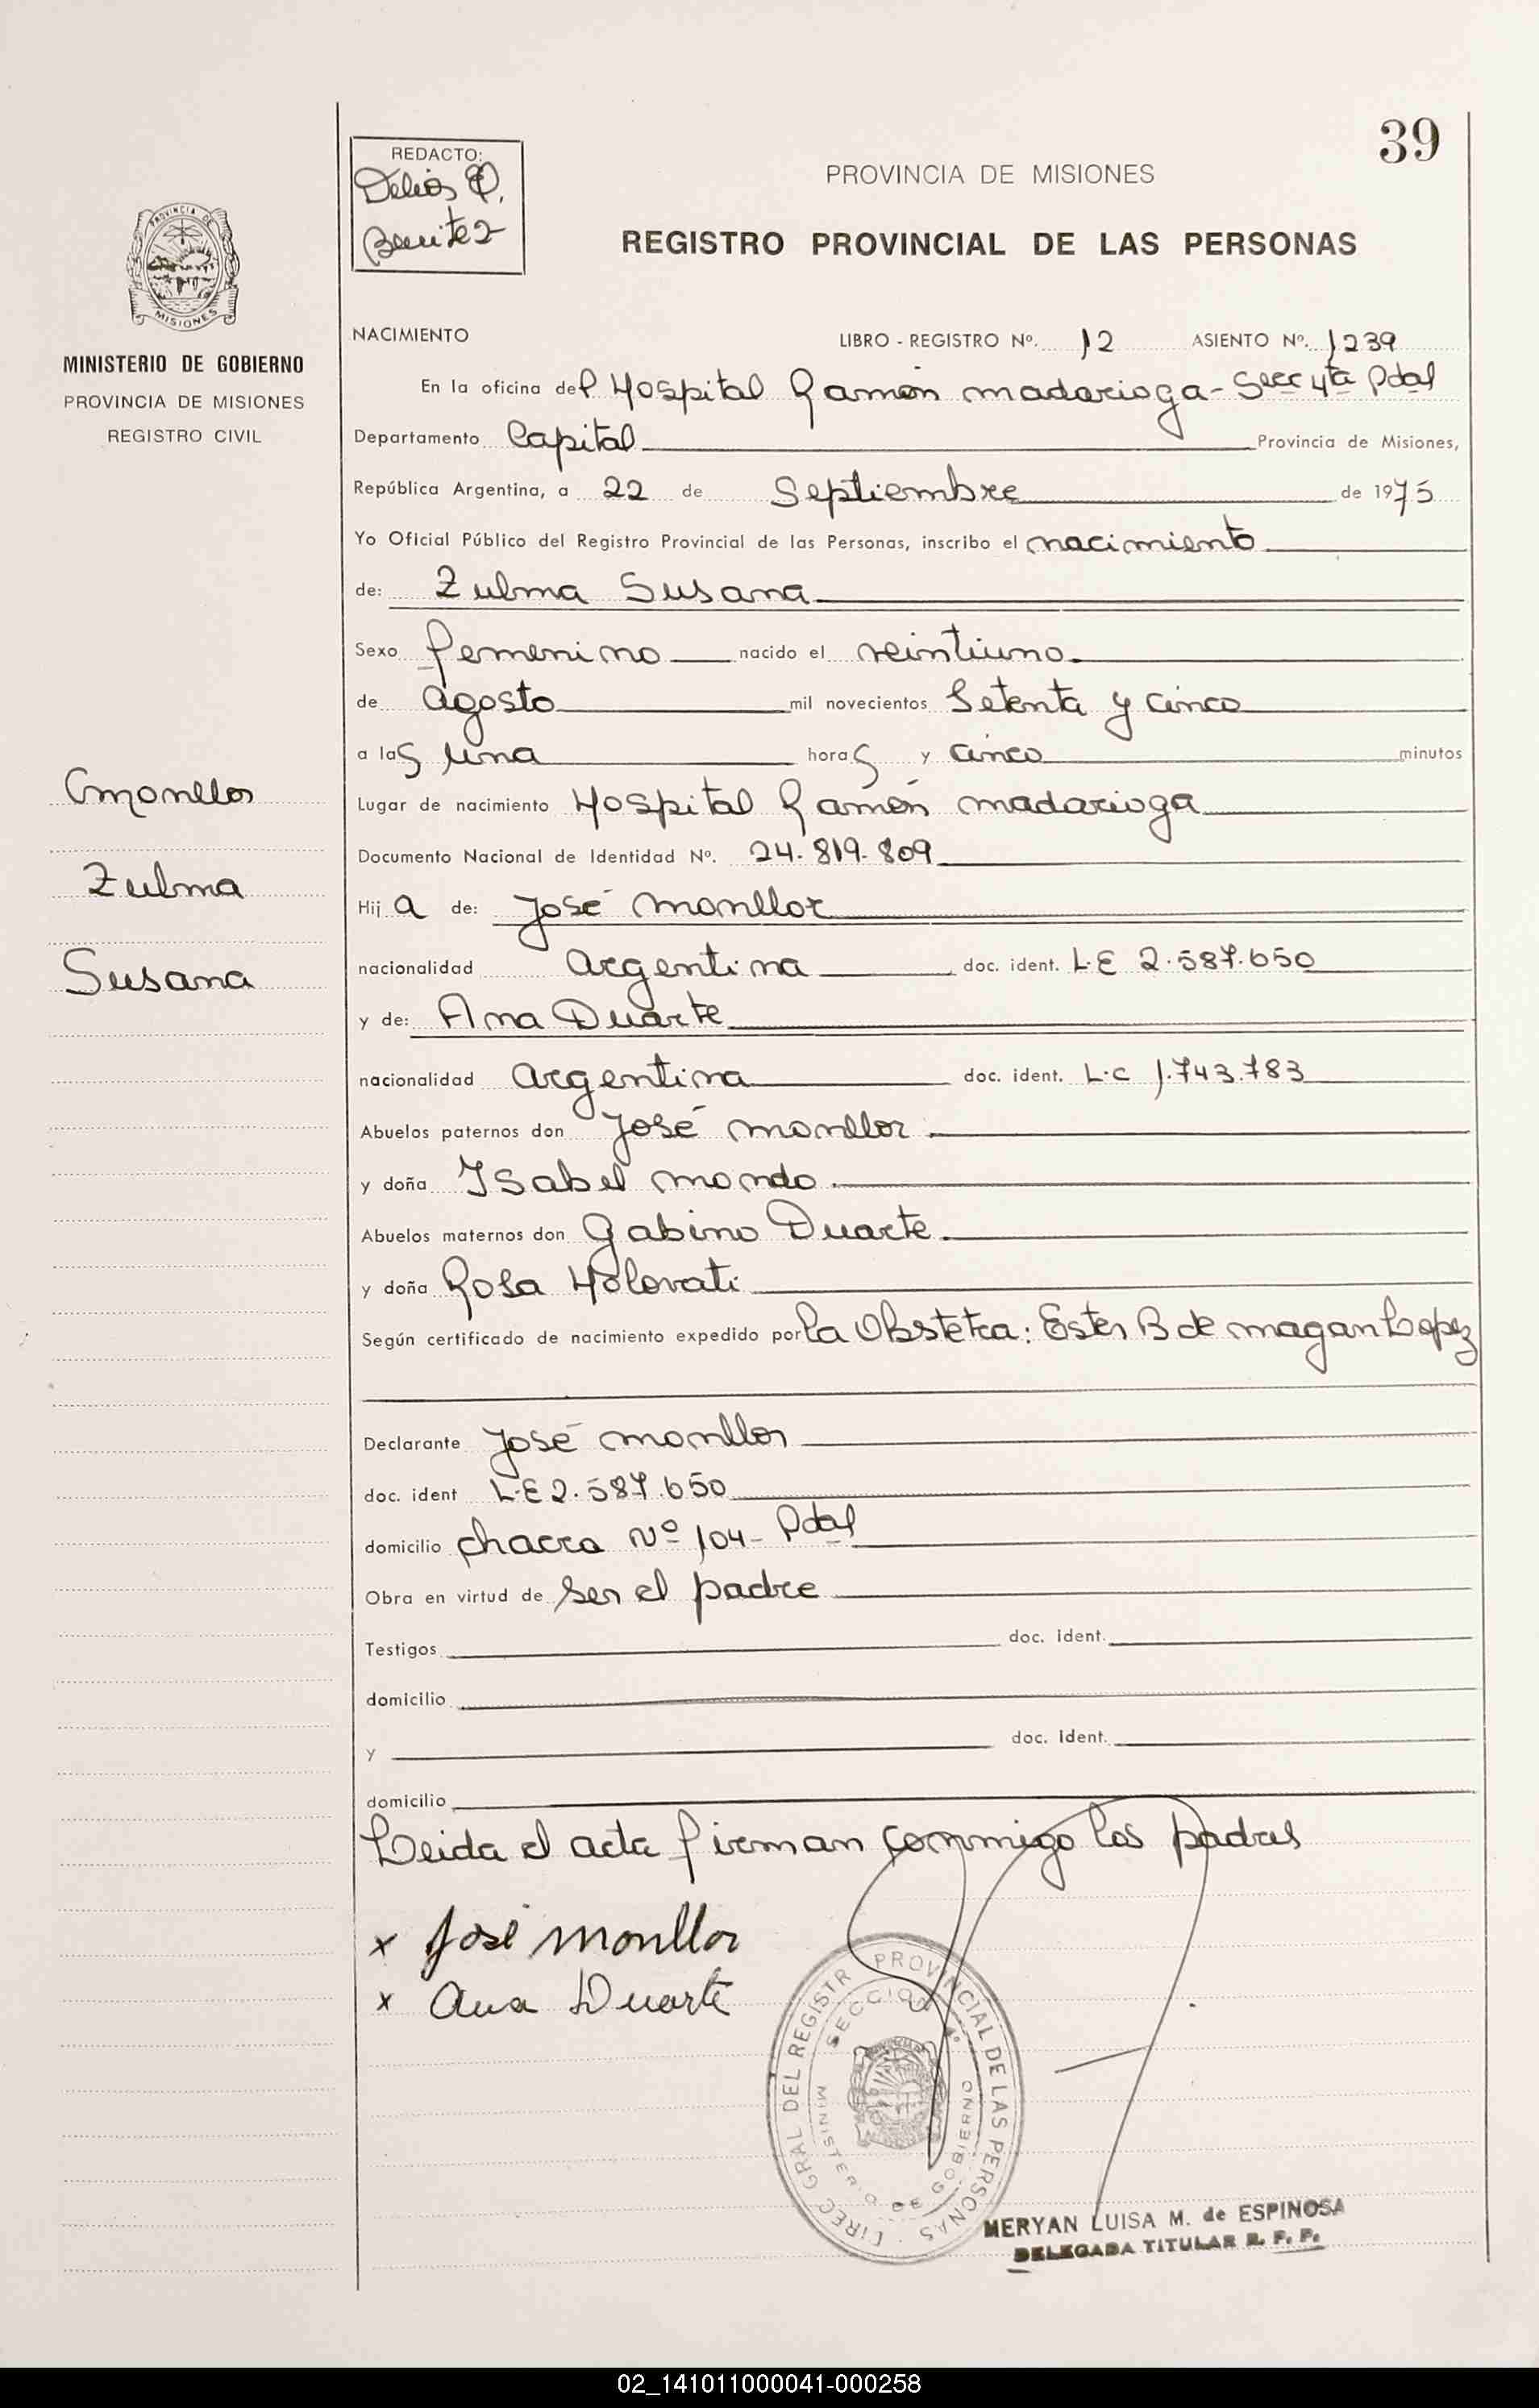 39
REDACTO:
Benitez
PROVINCIA DE MISIONES
REGISTRO PROVINCIAL DE LAS PERSONAS
PROVINCIA DE
MISIONES
MINISTERIO DE GOBIERNO
PROVINCIA DE MISIONES
REGISTRO CIVIL
NACIMIENTO LIBRO - REGISTRO Nº. 12 ASIENTO Nº. 1239
En la oficina del Hospital Ramón madarioga - Secc 4ta Pdal
Departamento Capital Provincia de Misiones,
República Argentina, a 22 de Septiembre de 1975
Yo Oficial Público del Registro Provincial de las Personas, inscribo el nacimiento
de: Zulma Susana
Sexo femenino nacido el veintiuno
de agosto mil novecientos Setenta y cinco
a las una horas y cinco minutos
Lugar de nacimiento Hospital Ramón madarioga
Documento Nacional de Identidad Nº. 24.819.809
Hija de: José monllor
nacionalidad argentina doc. ident. L.E 2.587.650
y de: Ana Duarte
nacionalidad argentina doc. ident. L.C 1.743.783
Abuelos paternos don José monllor
y doña Isabel mondo
Abuelos maternos don Gabino Duarte
y doña Rosa Holovati
Según certificado de nacimiento expedido por la Obstetra: Ester B de magan Lopez
Declarante José monllor
doc. ident L.E 2.587.650
domicilio chacra Nº 104 - Pdal
Obra en virtud de ser el padre
Testigos doc. ident.
domicilio
y doc. ident.
domicilio
Leida el acta firman conmigo los padres
x José Monllor
x Ana Duarte
monllor
Zulma
Susana
DIREC GRAL DEL REGISTR PROVINCIAL DE LAS PERSONAS
SECCION 4º
MINISTERIO DE GOBIERNO
MERYAN LUISA M. de ESPINOSA
DELEGADA TITULAR R. P. P.
02_141011000041-000258